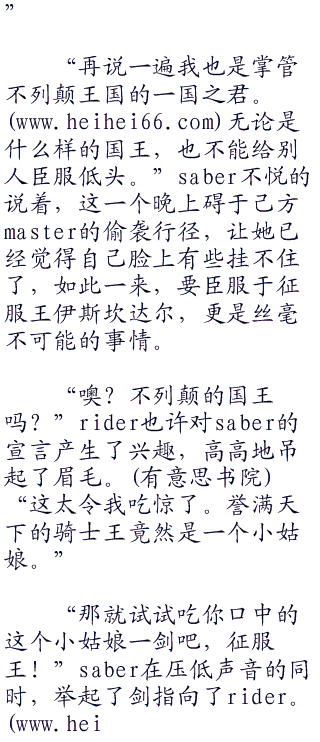 ”
“再说一遍我也是掌管
不列颠王国的一国之君。
(www.heihei66.com)无论是
什么样的国王，也不能给别
人臣服低头。”saber不悦的
说着，这一个晚上碍于己方
master的偷袭行径，让她已
经觉得自己脸上有些挂不住
了，如此一来，要臣服于征
服王伊斯坎达尔，更是丝毫
不可能的事情。
“噢？不列颠的国王
吗？”rider也许对saber的
宣言产生了兴趣，高高地吊
起了眉毛。(有意思书院)
“这太令我吃惊了。誉满天
下的骑士王竟然是一个小姑
娘。”
“那就试试吃你口中的
这个小姑娘一剑吧，征服
王！”saber在压低声音的同
时，举起了剑指向了rider。
(www.hei